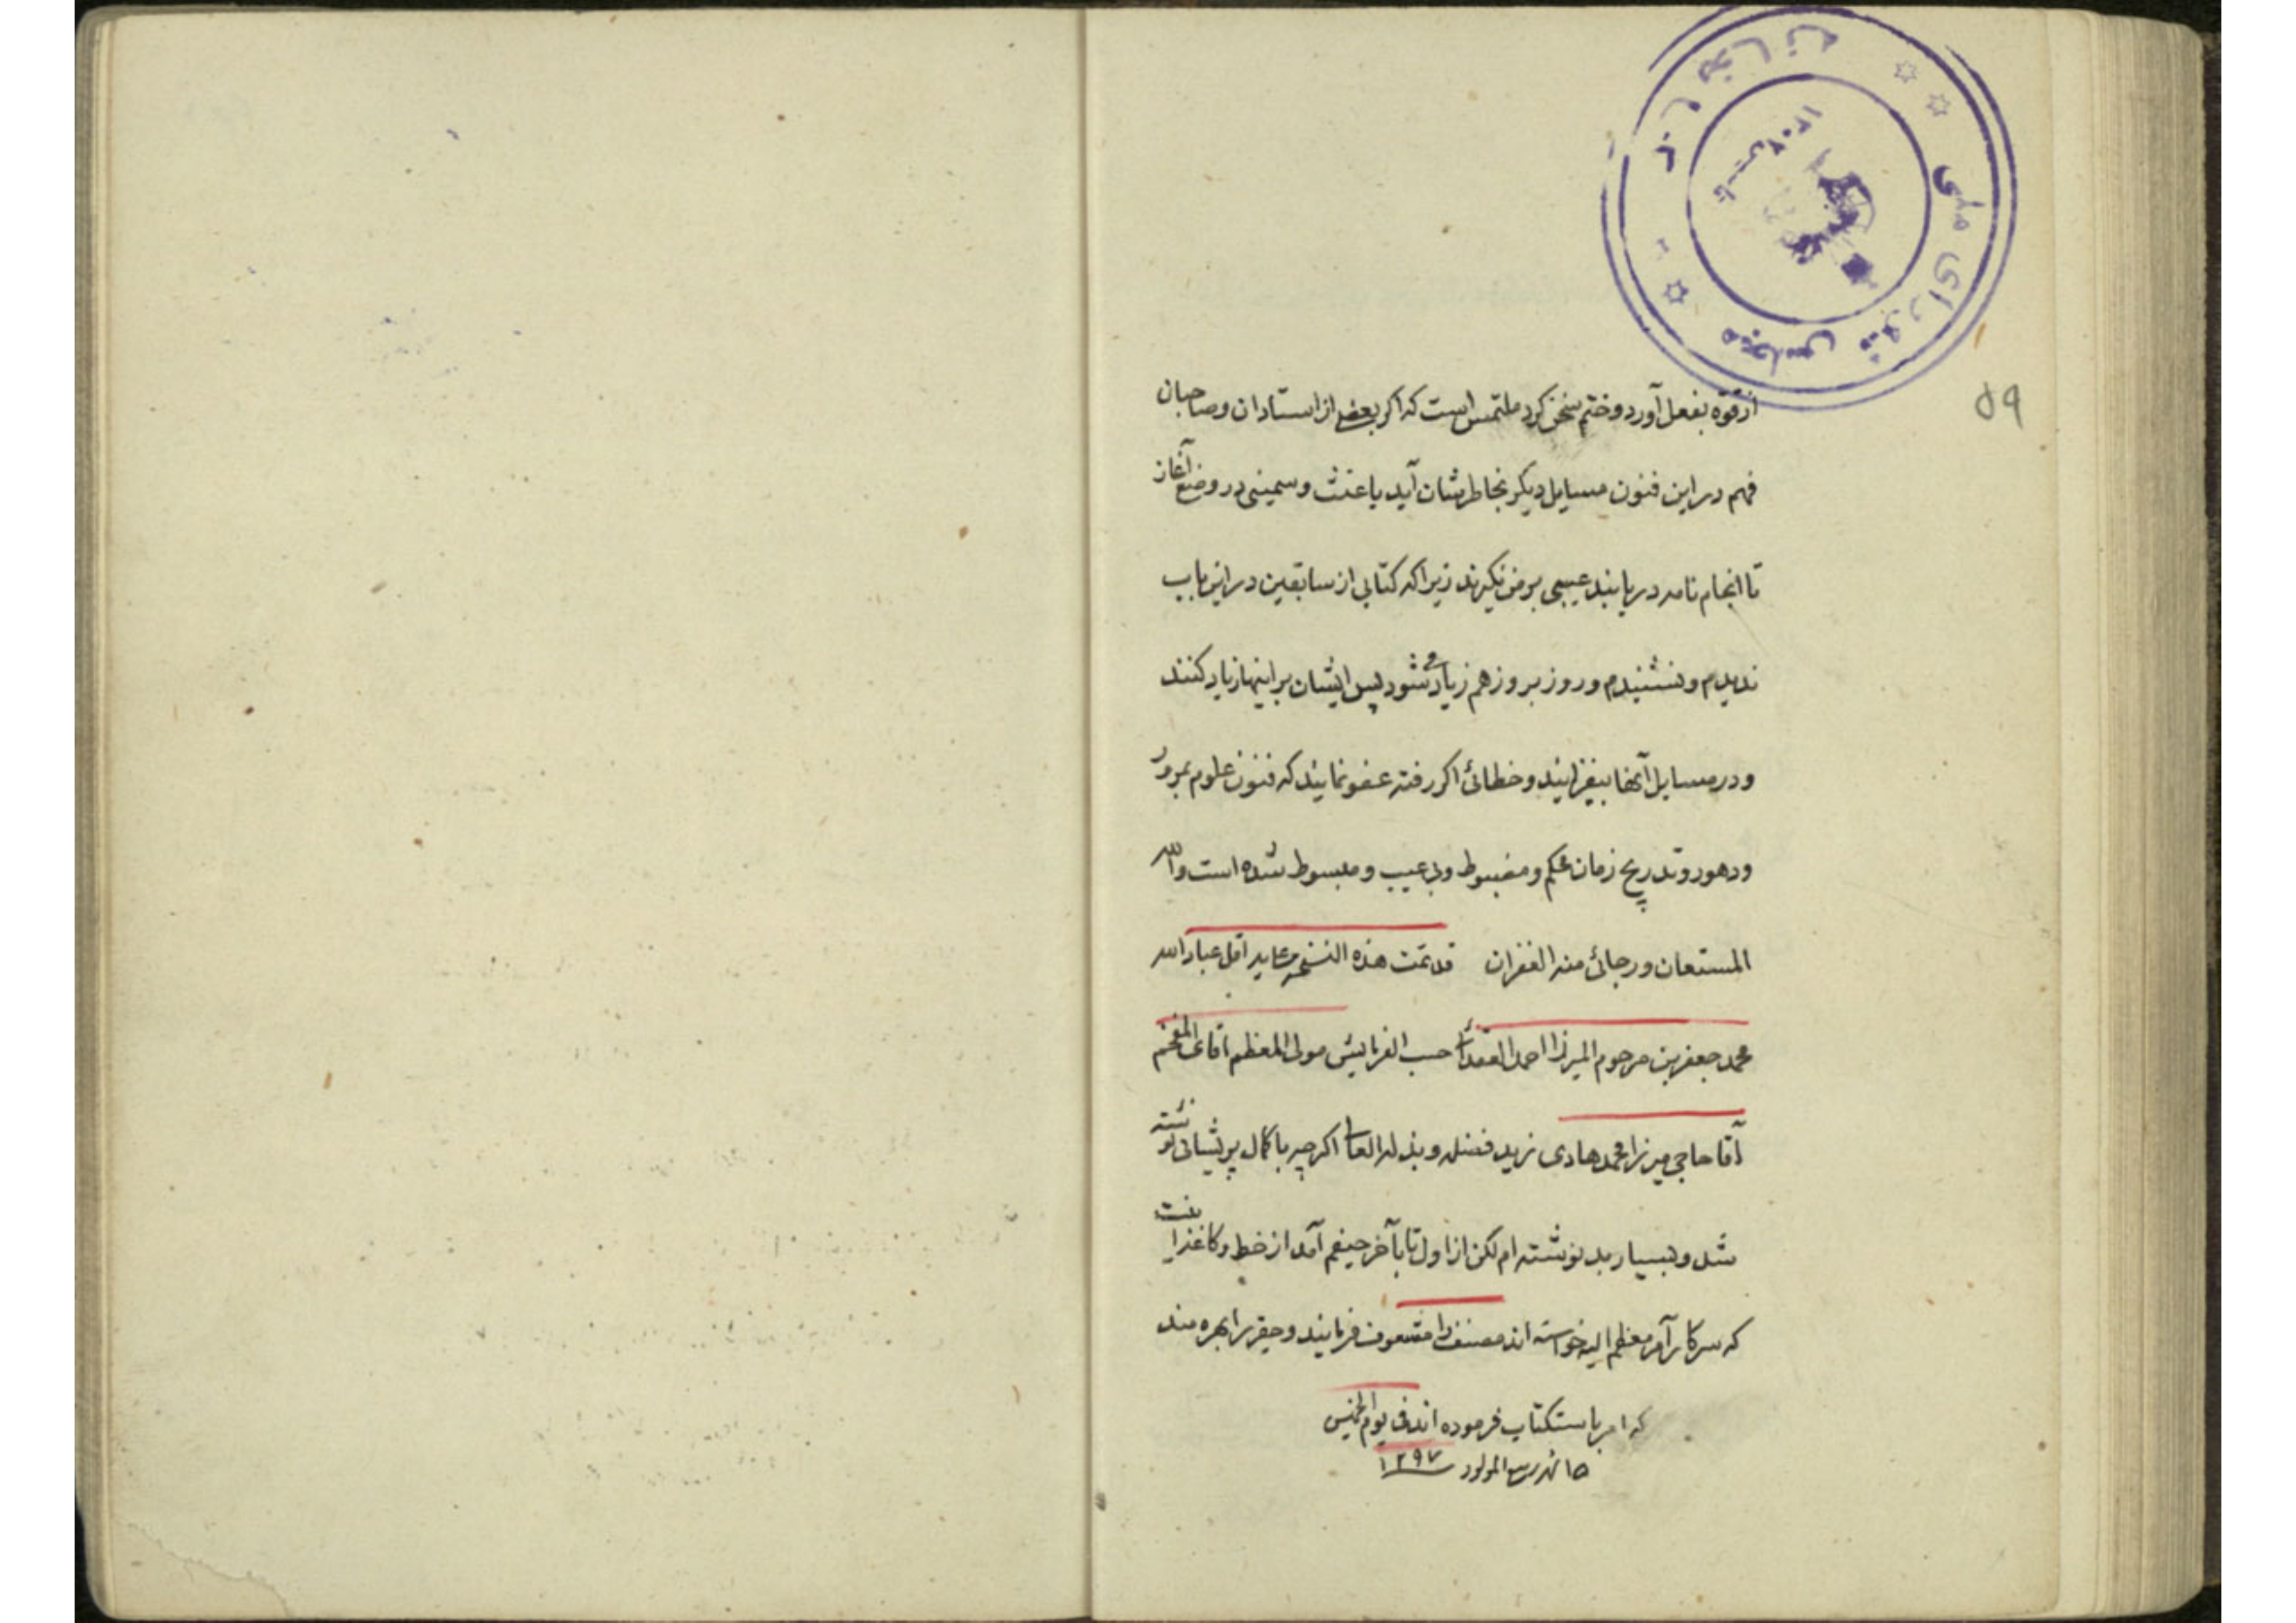 کتابخانه
مجلس شورای ملی
تاسیس ۱۳۰۲
۵۹
از قوّه بفعل آورد و ختم سخن کرد ملتمس است که اکر بعضی از استادان و صاحبان
فهم در این فنون مسایل دیکر بخاطرشان آید یا غث و سمینی در وضع آغاز
تا انجام نامه دریابند عیبی بر من نکیرند زیرا که کتابی از سابقین در این باب
ندیدم و نشنیدم و روز بروز هم زیاد می شود پس ایشان بر اینها زیاد کنند
و در مسایل آنها بیفزایند و خطائی اکر رفته عفو نمایند که فنون علوم بمرور
و دهور و تدریج زمان محکم و مضبوط و بی عیب و مبسوط شده است والله
المستعان و رجائی منه الغفران قد تمت هذه النسخه عاید اقل عباد الله
محمد جعفر بن مرحوم المیرزا احمد حسب الفرمایش مولی المعظم آقای المفخم
آقا حاجی میرزا محمد هادی زید فضله و بذله العالی اکرچه با کمال پریشانی نوشته
شد و بسیار بد نوشته ام لکن از اول تا بآخر حیفم آمد از خط و کاغذ
که سرکار آمر معظم الیه خواسته اند مصنف را مشعوف فرمایند و حقیر را بهره مند
که امر باستکتاب فرموده اند فی یوم الخمیس
۱۵ شهر ربیع المولود ۱۲۹۷